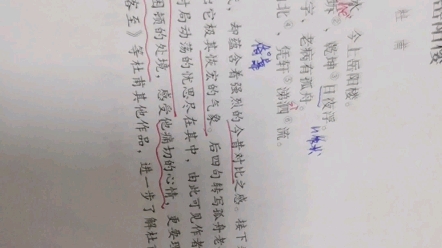 岳阳楼
杜甫
水，今上岳阳楼。
坼②，乾坤③日夜浮。
字，老病有孤舟。
北④，凭轩⑤涕泗⑥流。
，却蕴含着强烈的今昔对比之感。接下
它极其恢宏的气象。后四句转写孤舟老
时局动荡的忧思尽在其中，由此可见作者
困顿的处境，感受他痛切的心情，更要理
客至》等杜甫其他作品，进一步了解杜